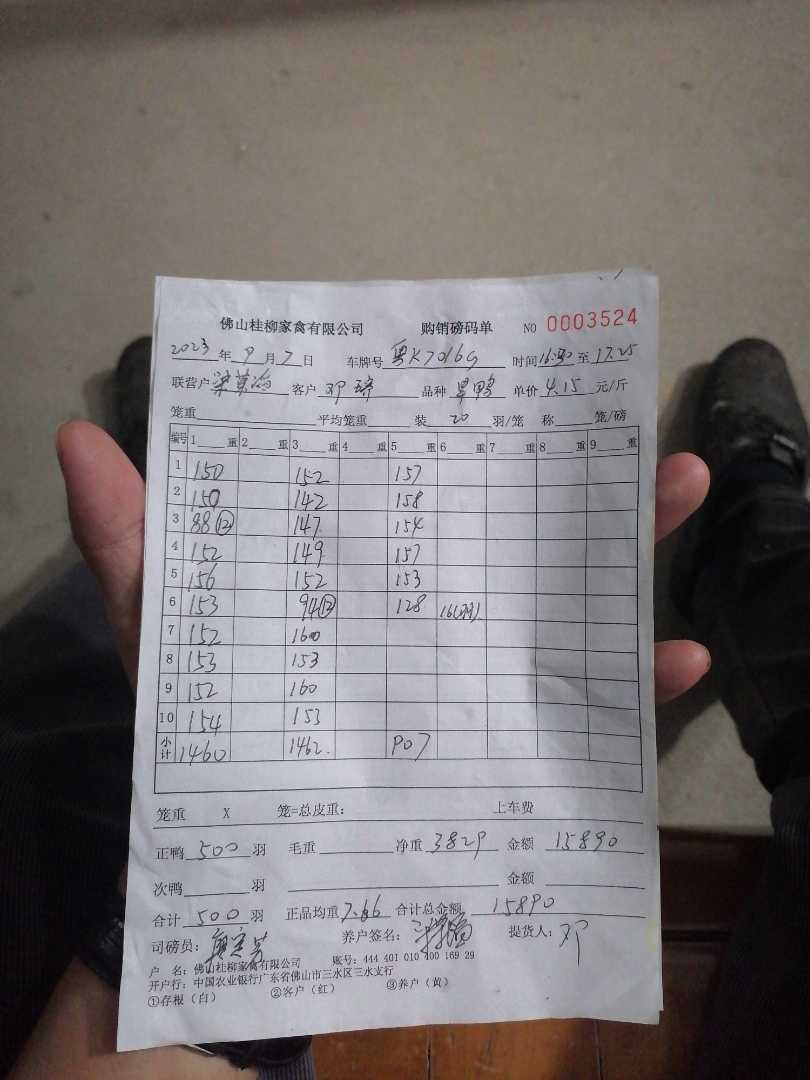 佛山桂柳家禽有限公司 购销磅码单 NO 0003524
2023年9月7日 车牌号 粤K7016G 时间16:30至17:25
联营户 客户 邓琦 品种 旱鸭 单价 4.15 元/斤
笼重 平均笼重 装 20 羽/笼 称 笼/磅
编号 1 重 2 重 3 重 4 重 5 重 6 重 7 重 8 重 9 重
1 150 152 157
2 150 142 158
3 88⑫ 147 154
4 152 149 157
5 156 152 153
6 153 94⑫ 128 16(羽)
7 152 160
8 153 153
9 152 160
10 154 153
小计 1460 1462. 907
笼重 X 笼=总皮重: 上车费
正鸭 500 羽 毛重 净重 3829 金额 15890
次鸭 羽 金额
合计 500 羽 正品均重 7.66 合计总金额 15890
司磅员: 养户签名: 提货人: 邓
户 名: 佛山桂柳家禽有限公司 账号: 444 401 010 400 169 29
开户行: 中国农业银行广东省佛山市三水区三水支行
①存根（白） ②客户（红） ③养户（黄）